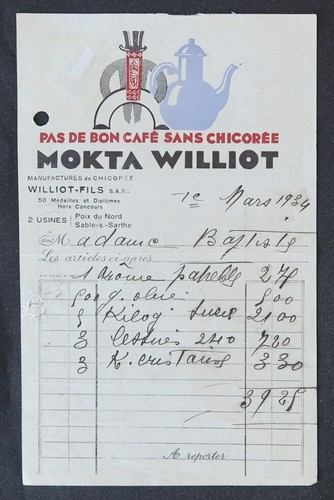 PAS DE BON CAFÉ SANS CHICORÉE
MOKTA WILLIOT
MANUFACTURES de CHICORÉE
WILLIOT-FILS S.A.R.L.
50 Médailles et Diplômes
Hors Concours
2 USINES Poix du Nord
Sablé-s.-Sarthe
1er Mars 1934
Madame Baptiste
Les articles ci après
1 Arôme 2 75
500g. 8 00
5 Kilog Sucre 21 00
3 Lessives 2 40 7 20
3 K. cristaux 3 30
39 25
A reporter